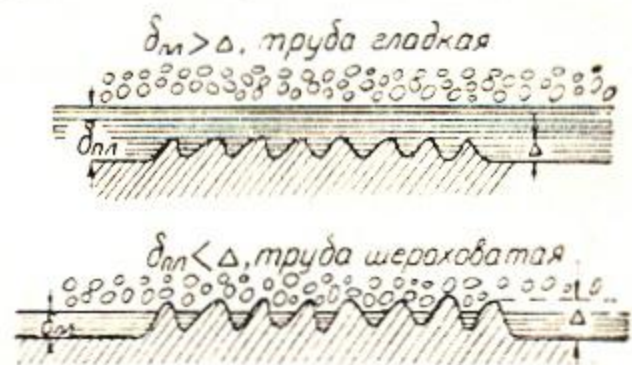 δпл > Δ, труба гладкая
δпл
Δ
δпл < Δ, труба шероховатая
δпл
Δ